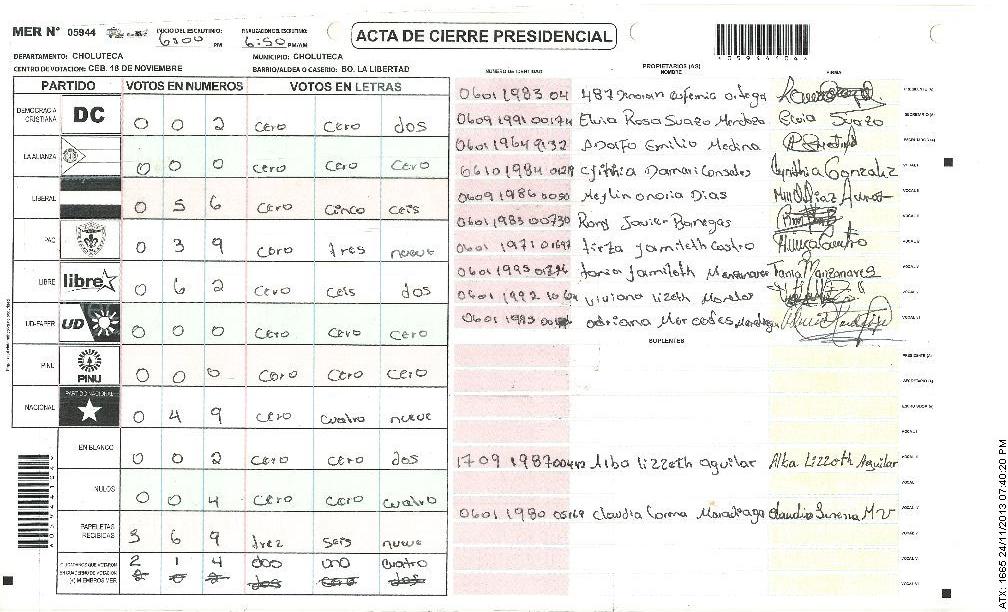 MER N° 05944 INICIO DEL ESCRUTINIO: 6:00 PM FINALIZACION DEL ESCRUTINIO: 6:50 PM/AM ACTA DE CIERRE PRESIDENCIAL
DEPARTAMENTO: CHOLUTECA MUNICIPIO: CHOLUTECA
CENTRO DE VOTACION: CEB. 18 DE NOVIEMBRE BARRIO/ALDEA O CASERIO: BO. LA LIBERTAD
NUMERO DE IDENTIDAD PROPIETARIOS (AS) NOMBRE FIRMA
PARTIDO VOTOS EN NUMEROS VOTOS EN LETRAS
DEMOCRACIA CRISTIANA DC 0 0 2 cero cero dos
LA ALIANZA 0 0 0 cero cero cero
LIBERAL 0 5 6 cero cinco ceis
PAC 0 3 9 cero tres nueve
LIBRE libre 0 6 2 cero ceis dos
UD-FAPER UD 0 0 0 cero cero cero
PINU PINU 0 0 0 cero cero cero
NACIONAL PARTIDO NACIONAL 0 4 9 cero cuatro nueve
EN BLANCO 0 0 2 cero cero dos
NULOS 0 0 4 cero cero cuatro
PAPELETAS RECIBICAS 3 6 9 trez seis nueve
CIUDADANOS QUE VOTARON EN CUADERNO DE VOTACION (+) MIEMBROS MER 2 1 4 dos uno cuatro
0601 1983 04 487
0609 1991 00174 Elvia Rosa Suazo Mendoza Elvia Suazo
0601 1964 9132 Adolfo Emilio Medina
Damari Gonsales Cynthia Gonzalez
0609 1986 0050 Meylin onoria Dias
0601 1983 00730 Rony Javier Banegas
0601 1971 01697 tirza jamileth castro
tania jamileth Manzanares Tania Manzanares
viviana lizeth
adriana Mercedes
SUPLENTES
1709 1987 Alba lizzeth aguilar Alba Lizzeth Aguilar
0601 1980 Claudia Corina
ATX: 1665 24/11/2013 07:40:20 PM